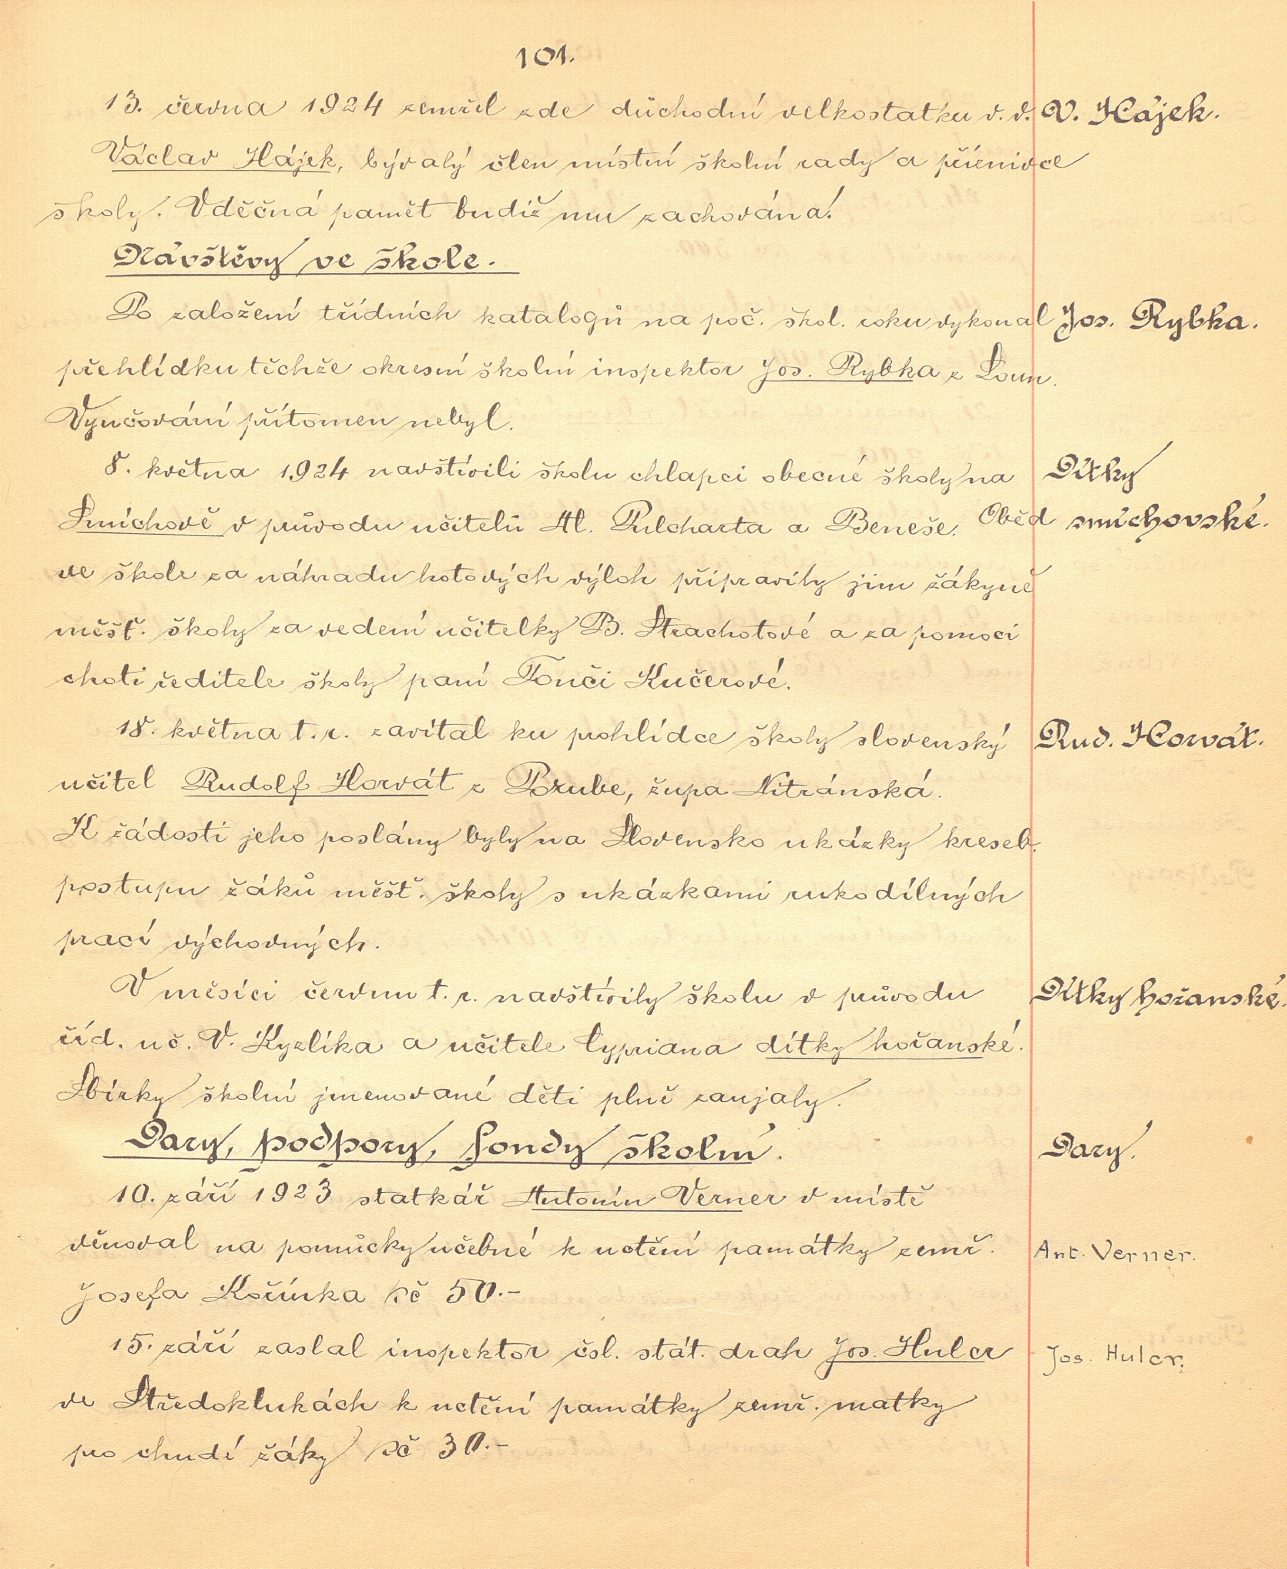 101.
13. června 1924 zemřel zde důchodní velkostatku v. v. V. Hájek.
Václav Hájek, bývalý člen místní školní rady a příznivce
školy. Vděčná paměť budiž mu zachována!
Návštěvy ve škole.
Po založení třídních katalogů na poč. škol. roku vykonal Jos. Rybka.
přehlídku těchže okresní školní inspektor Jos. Rybka z Loun.
Vyučování přítomen nebyl.
8. května 1924 navštívili školu chlapci obecné školy na Dítky
Smíchově v průvodu učitelů Al. Pulcharta a Beneše. Oběd smíchovské.
ve škole za náhradu hotových výloh připravily jim žákyně
měšť. školy za vedení učitelky B. Strachotové a za pomoci
choti ředitele školy paní Tonči Kučerové.
18. května t. r. zavítal ku prohlídce školy slovenský Rud. Horvát.
učitel Rudolf Horvát z Porube, župa Nitránská.
K žádosti jeho poslány byly na Slovensko ukázky kreseb.
postupu žáků měšť. školy s ukázkami rukodílných
prací výchovných.
V měsíci červnu t. r. navštívily školu v průvodu Dítky hořanské.
říd. uč. V. Kyzlíka a učitele Cypriana dítky hořanské.
Sbírky školní jmenované děti plně zaujaly.
Dary, podpory, fondy školní. Dary.
10. září 1923 statkář Antonín Verner v místě
věnoval na pomůcky učebné k uctění památky zemř. Ant. Verner.
Josefa Kořínka Kč 50.-
15. září zaslal inspektor čsl. stát. drah Jos. Huler Jos. Huler.
ve Středoklukách k uctění památky zemř. matky
pro chudé žáky Kč 30.-